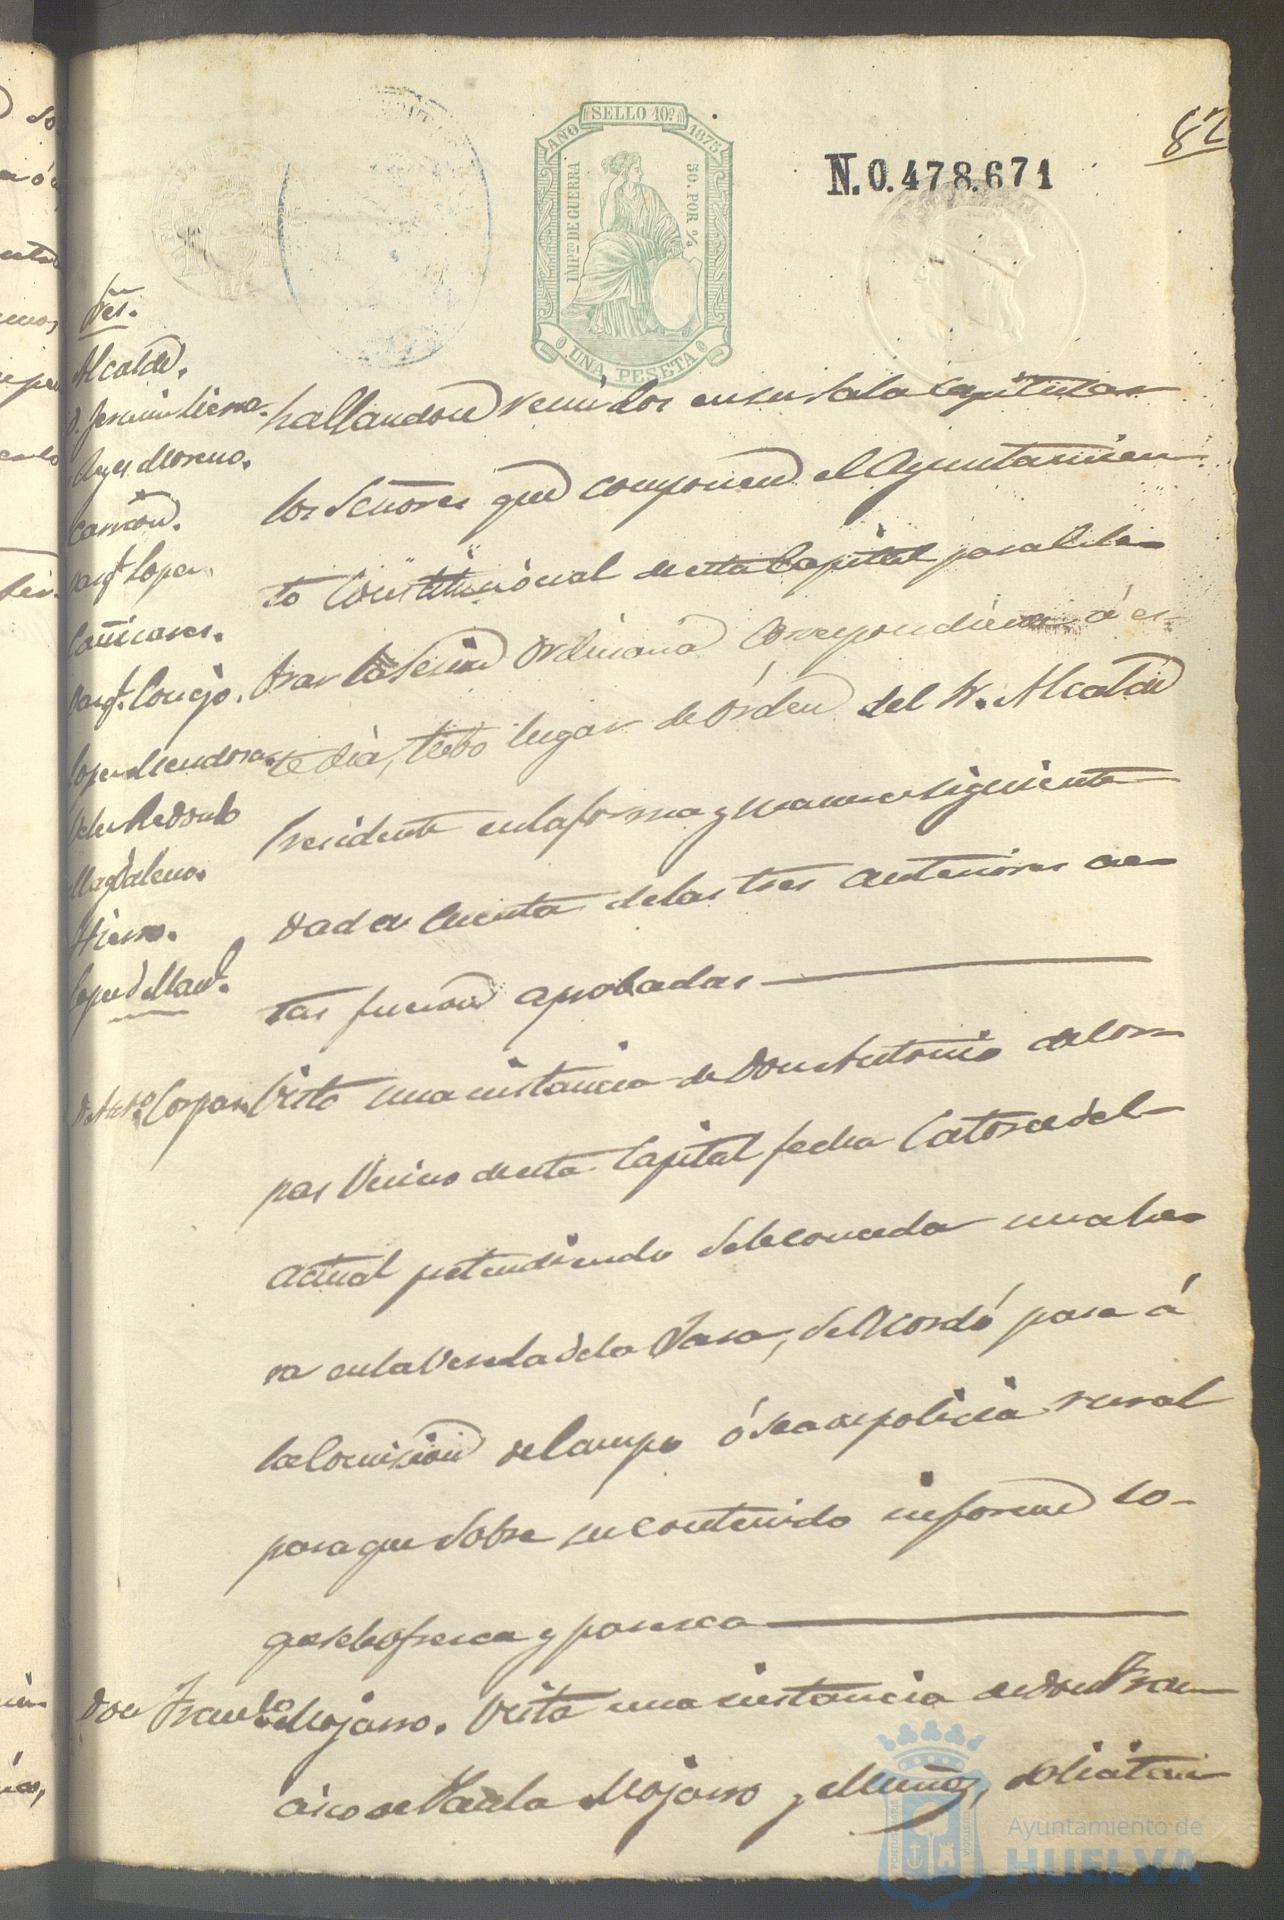 82
AÑO SELLO 10º 1875
IMPTO DE GUERRA
50 POR %
UNA PESETA
N.0.478.671
Sres.
Alcalde.
D. Jeronimo Sierra.
Reyes Moreno.
Carrion.
Vazqz. Lopez.
Cañizares.
Vazqz. Conejo.
Lopez Mendoza.
Velez Redondo
Magdaleno.
Hierro.
hallandose reunidos en su Sala Capitular
los Señores que componen el Ayuntamien-
to Constitucional de esta Capital para cele-
brar la Sesion Ordinaria correspondiente á es-
te dia, tubo lugar de órden del Sr. Alcalde
Presidente en la forma y manera siguiente
Dada cuenta de las tres anteriores ac-
tas fueron aprobadas
D. Anto. Corpas. Visto una instancia de Don Antonio de Cor-
pas Vecino de esta Capital fecha Catorce del
actual pretendiendo se le conceda una ha-
za en la Vereda de la Vaca, se acordó pase á
la Comision de Campo ó sea de policia rural
para que sobre su contenido informe lo
que se le ofrezca y parezca
Don Franco. Mojarro. Vista una instancia de Don Fran-
cisco de Paula Mojarro y Muñoz, solicitan
Ayuntamiento de
HUELVA